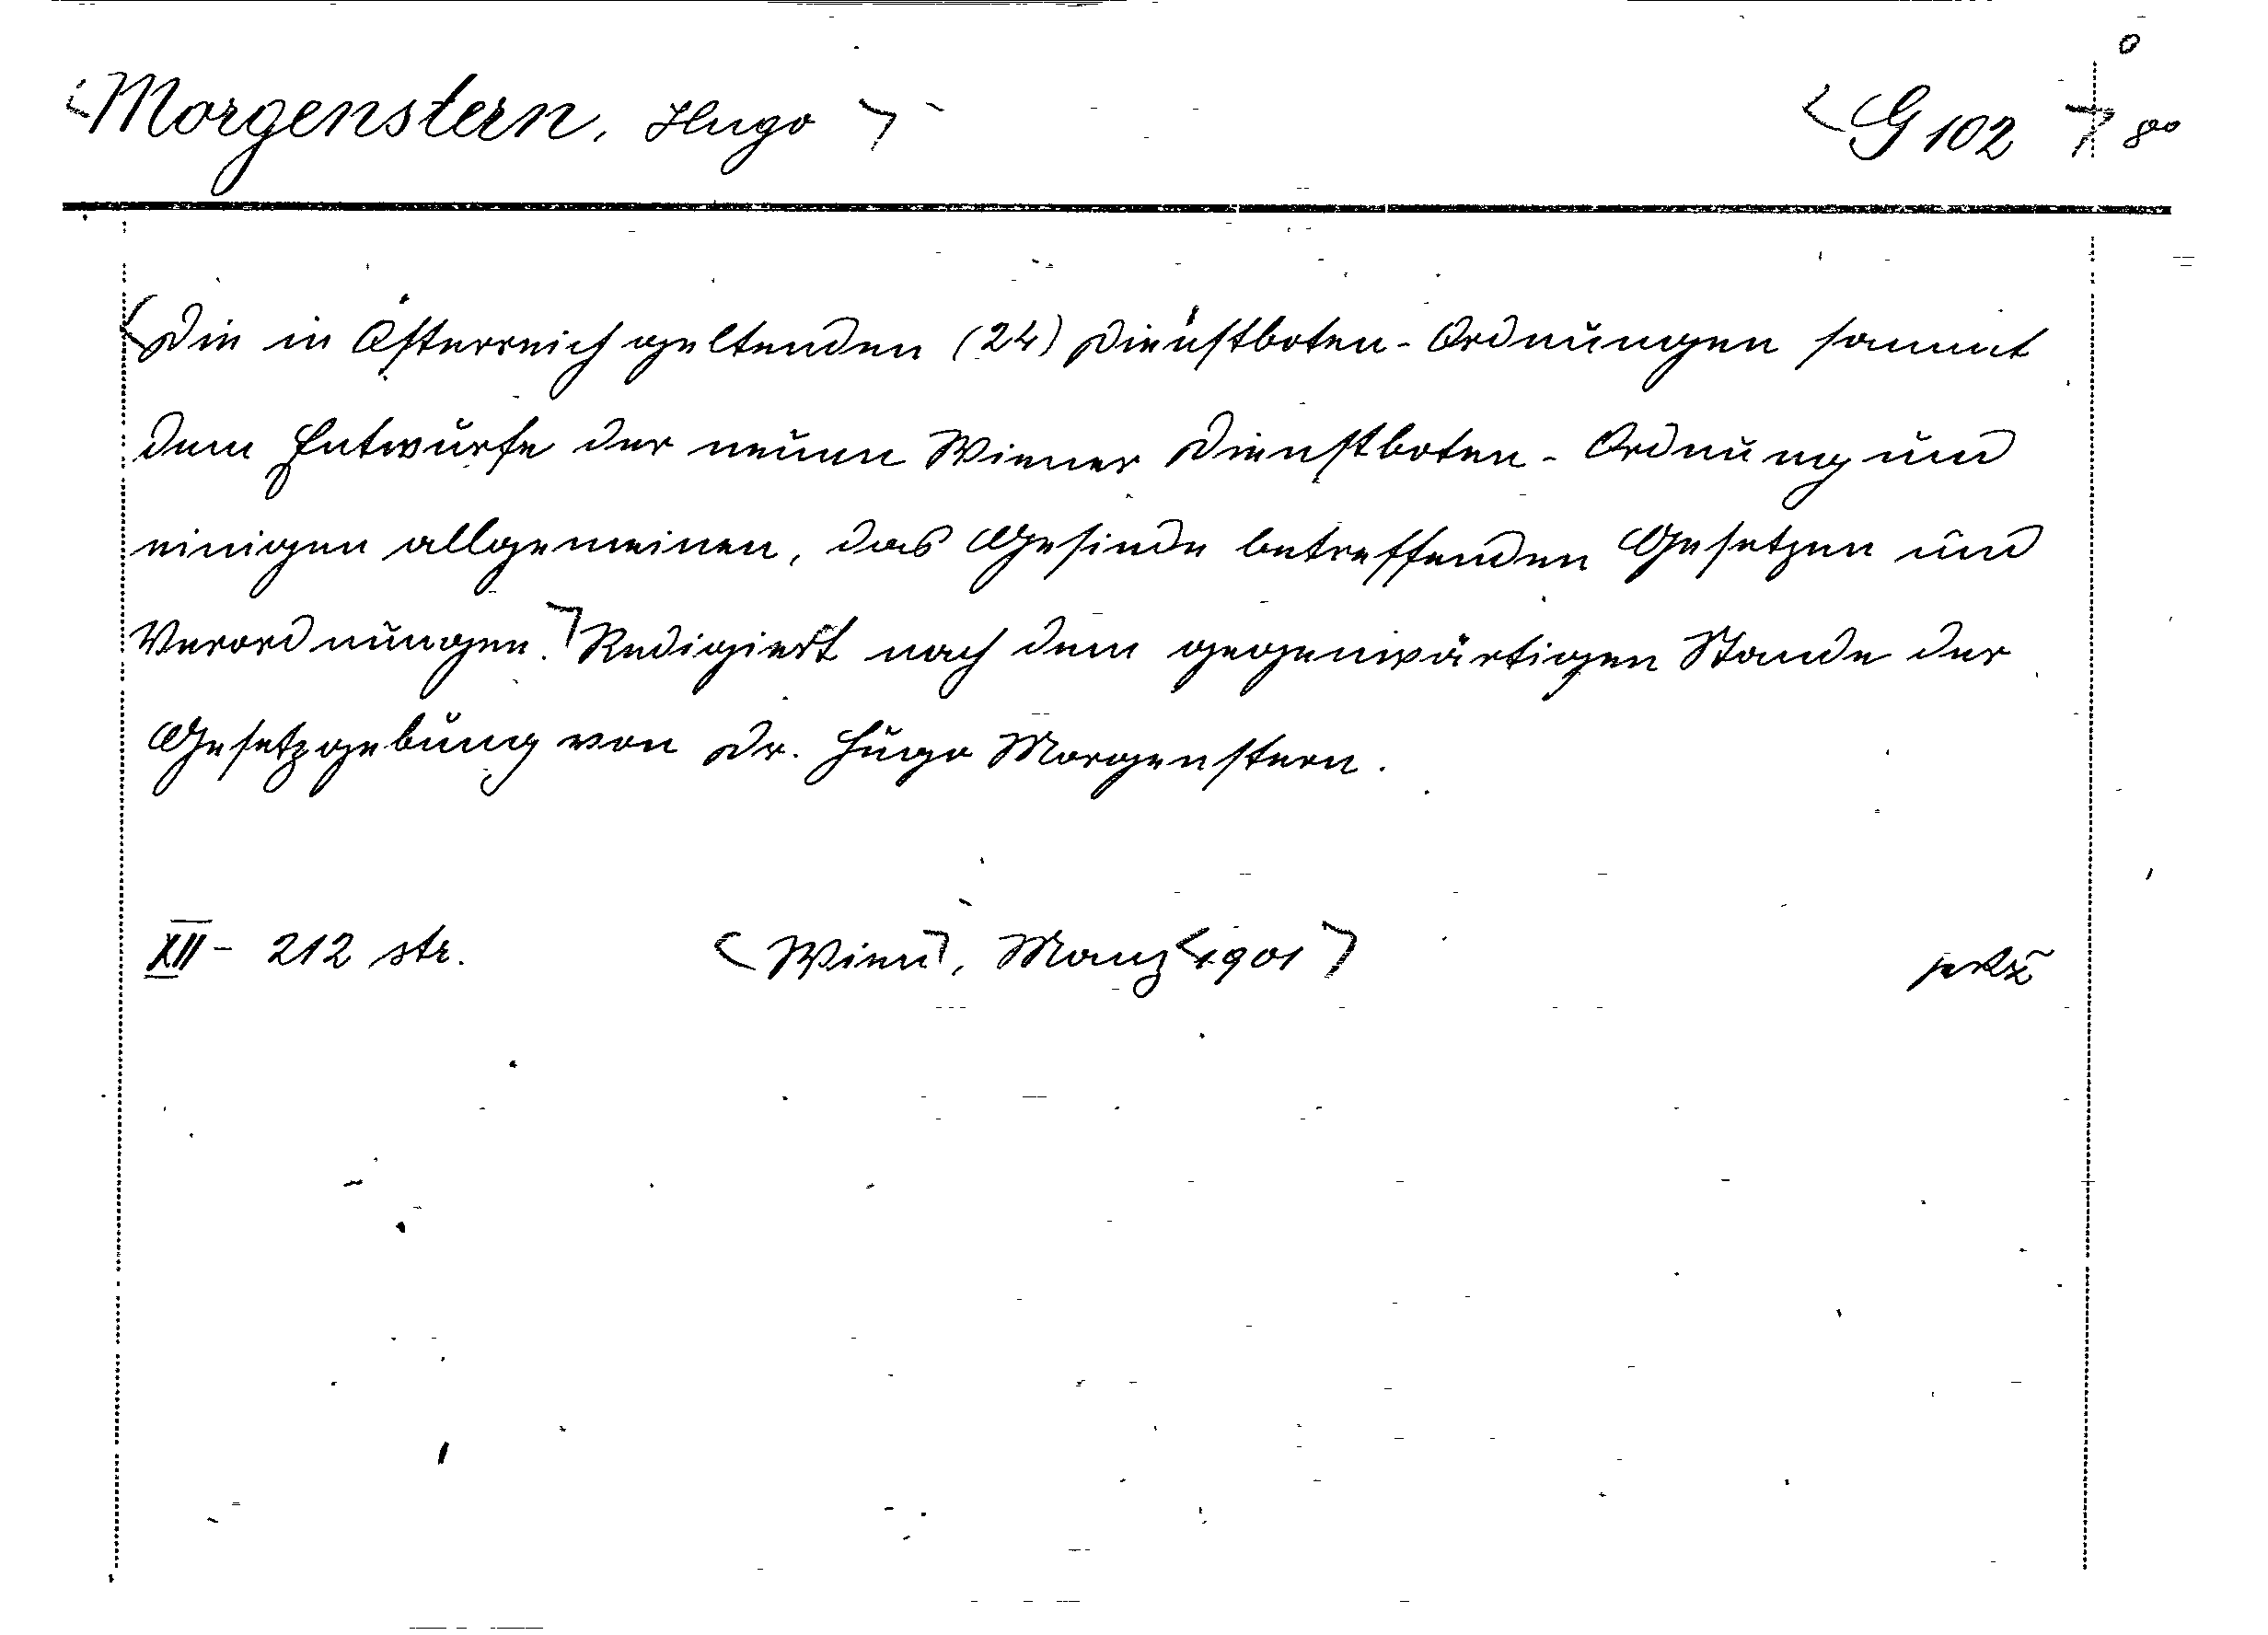 Morgenstern, Hugo G 102 8°°
Die in Österreich geltenden (24) Dienstboten-Ordnungen sammt
dem Entwurfe der neuen Wiener Dienstboten-Ordnung und
einigen allgemeinen, das Gesinde betreffenden Gesetzen und
Verordnungen. Redigiert nach dem gegenwärtigen Stande der
Gesetzgebung von Dr. Hugo Morgenstern.
XII - 212 str. Wien, Manz 1901